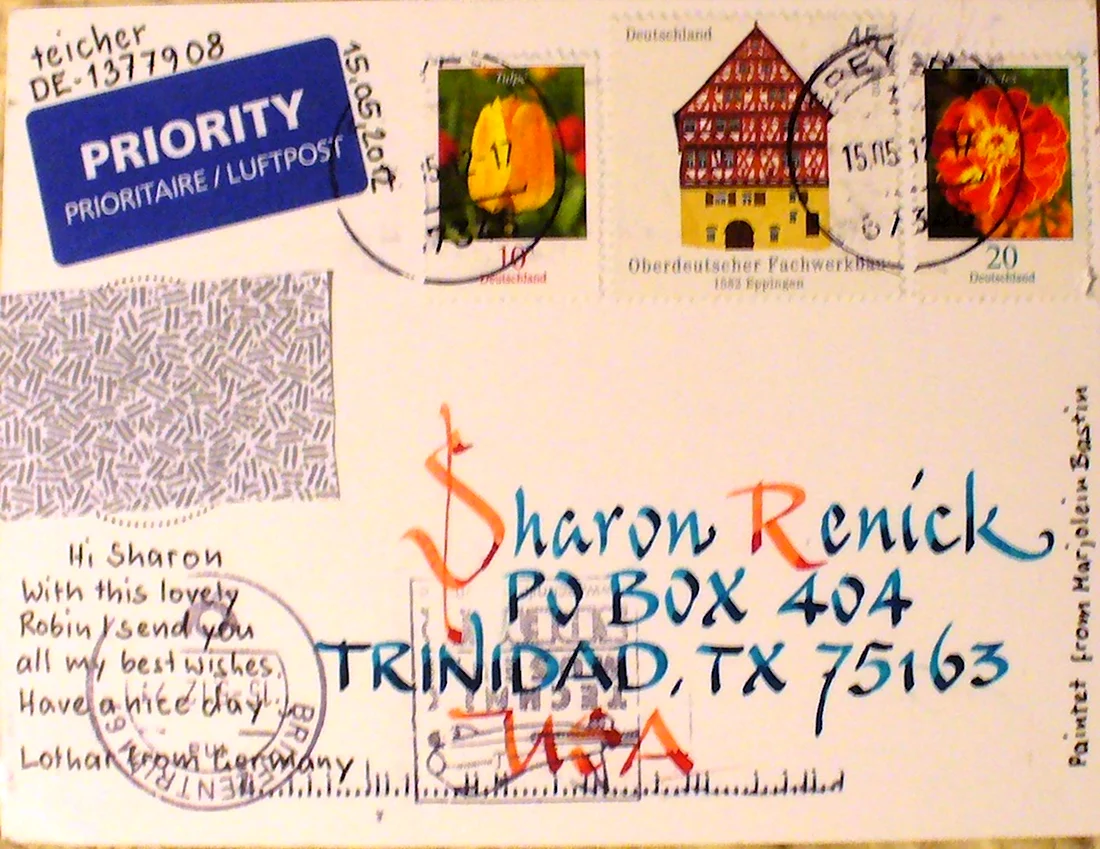 teicher
DE-1377908
15.05.2012
PRIORITY
PRIORITAIRE / LUFTPOST
Tulpe
10
Deutschland
Deutschland
45
Oberdeutscher Fachwerkbau
1582 Eppingen
15.05
17
20
Deutschland
Hi Sharon
With this lovely
Robin I send you
all my best wishes.
Have a nice day!
Lothar from Germany
Sharon Renick
PO BOX 404
TRINIDAD, TX 75163
USA
Paintet from Marjolein Bastin